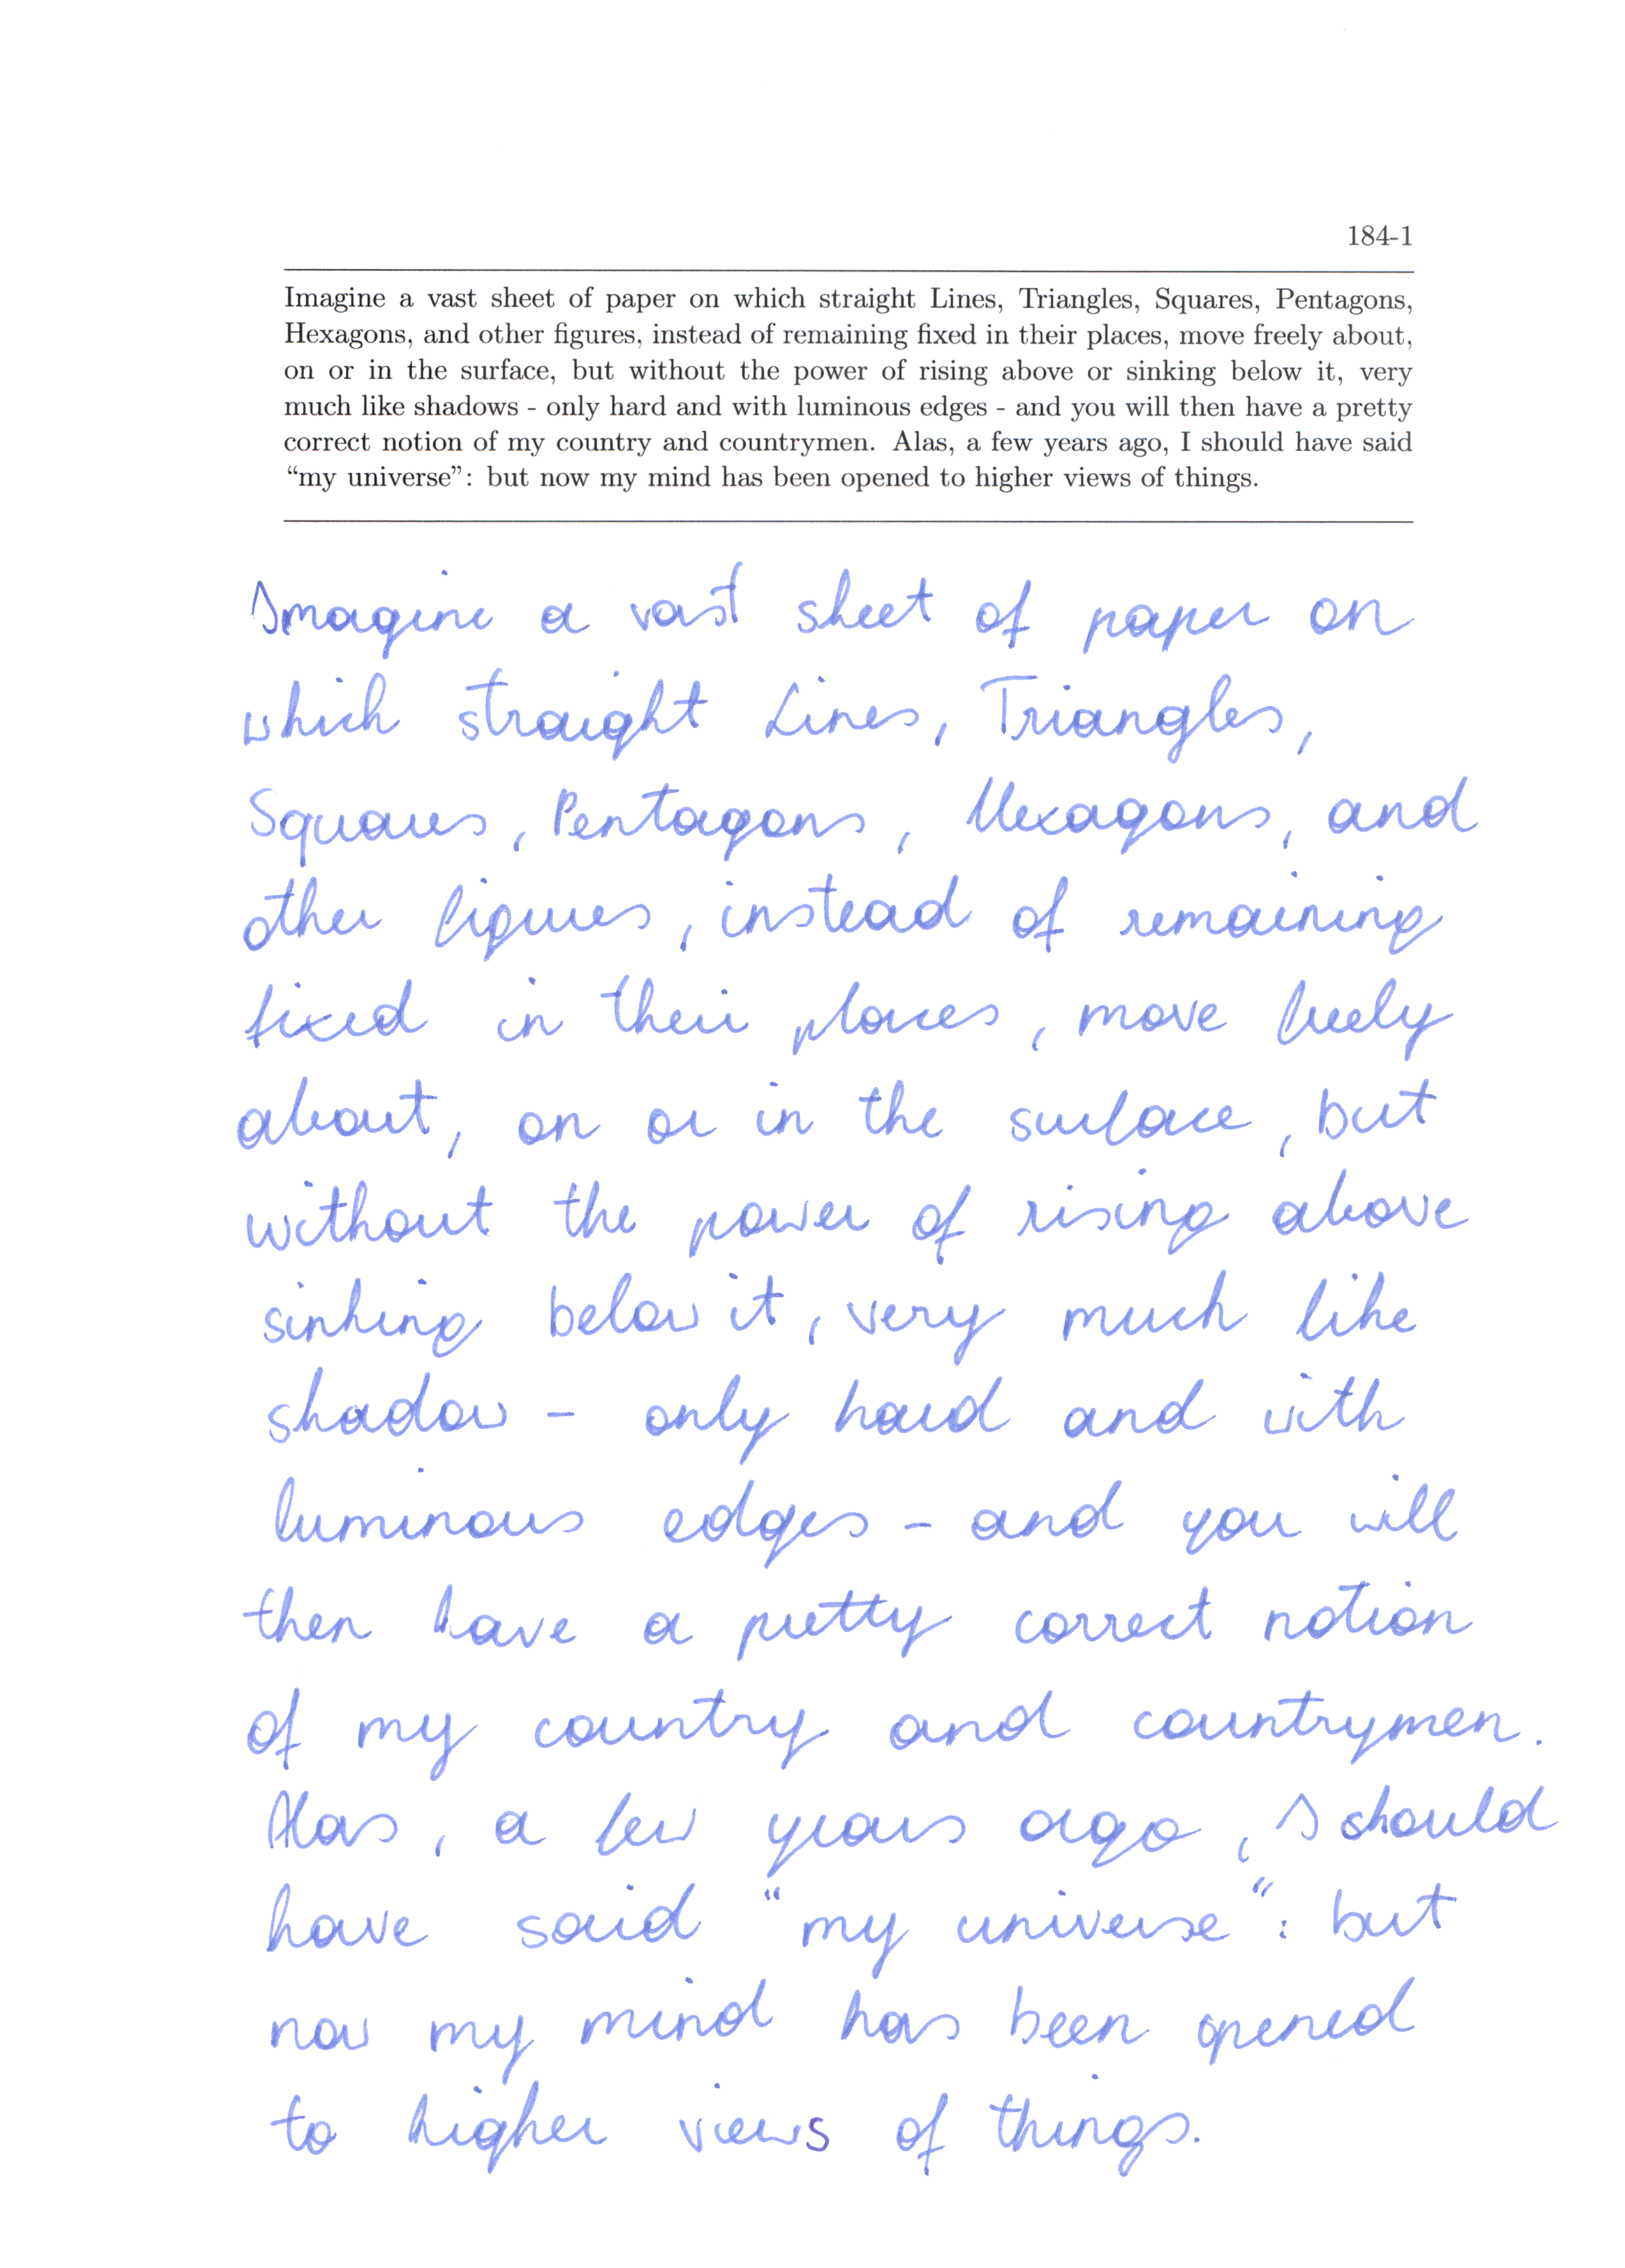 184-1
Imagine a vast sheet of paper on which straight Lines, Triangles, Squares, Pentagons,
Hexagons, and other figures, instead of remaining fixed in their places, move freely about,
on or in the surface, but without the power of rising above or sinking below it, very
much like shadows - only hard and with luminous edges - and you will then have a pretty
correct notion of my country and countrymen. Alas, a few years ago, I should have said
“my universe”: but now my mind has been opened to higher views of things.
Imagine a vast sheet of paper on
which straight Lines, Triangles,
Squares, Pentagons, Hexagons, and
other figures, instead of remaining
fixed in their places, move freely
about, on or in the surface, but
without the power of rising above
sinking below it, very much like
shadow - only hard and with
luminous edges - and you will
then have a pretty correct notion
of my country and countrymen.
Alas, a few years ago, I should
have said “my universe”: but
now my mind has been opened
to higher views of things.